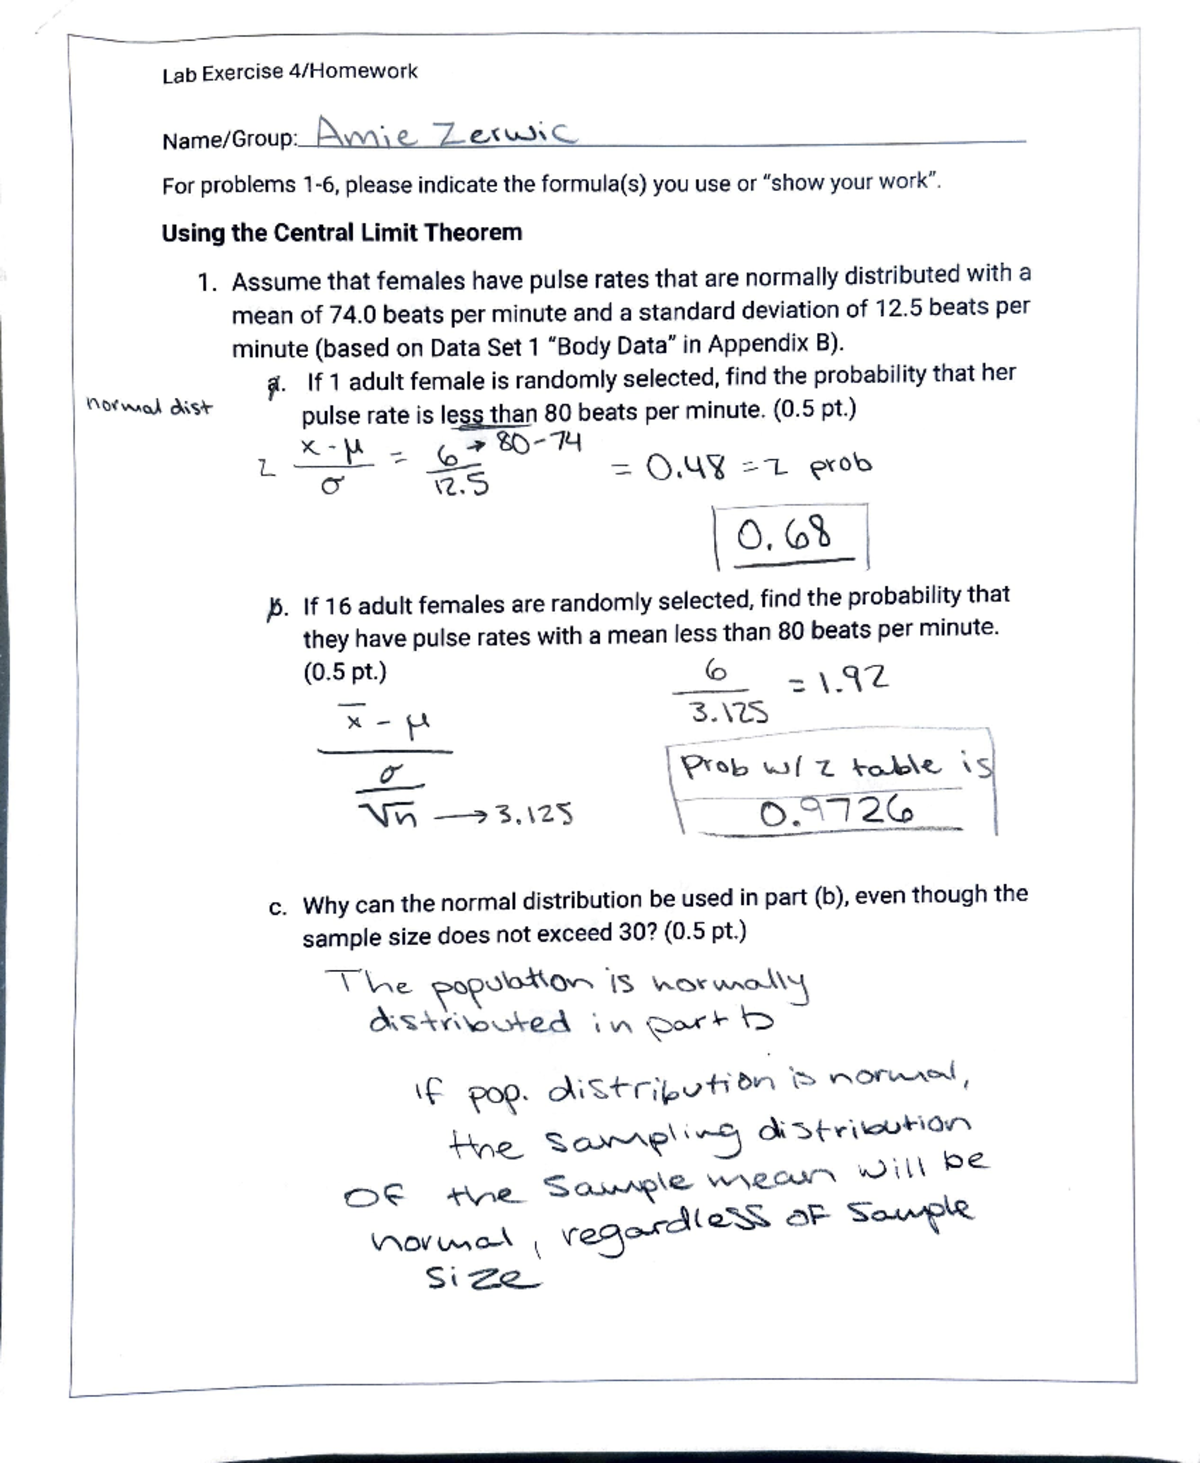 Lab Exercise 4/Homework
Name/Group: Amie Zerwic
For problems 1-6, please indicate the formula(s) you use or “show your work”.
Using the Central Limit Theorem
1. Assume that females have pulse rates that are normally distributed with a
mean of 74.0 beats per minute and a standard deviation of 12.5 beats per
minute (based on Data Set 1 “Body Data” in Appendix B).
a. If 1 adult female is randomly selected, find the probability that her
normal dist
pulse rate is less than 80 beats per minute. (0.5 pt.)
z x-μ/σ = 6/12.5 → 80-74 = 0.48 = z prob
0.68
b. If 16 adult females are randomly selected, find the probability that
they have pulse rates with a mean less than 80 beats per minute.
(0.5 pt.)
6/3.125 = 1.92
x̄ - μ
σ/√n → 3.125
Prob w/ z table is
0.9726
c. Why can the normal distribution be used in part (b), even though the
sample size does not exceed 30? (0.5 pt.)
The population is normally
distributed in part b
if pop. distribution is normal,
the sampling distribution
of the sample mean will be
normal, regardless of sample
size